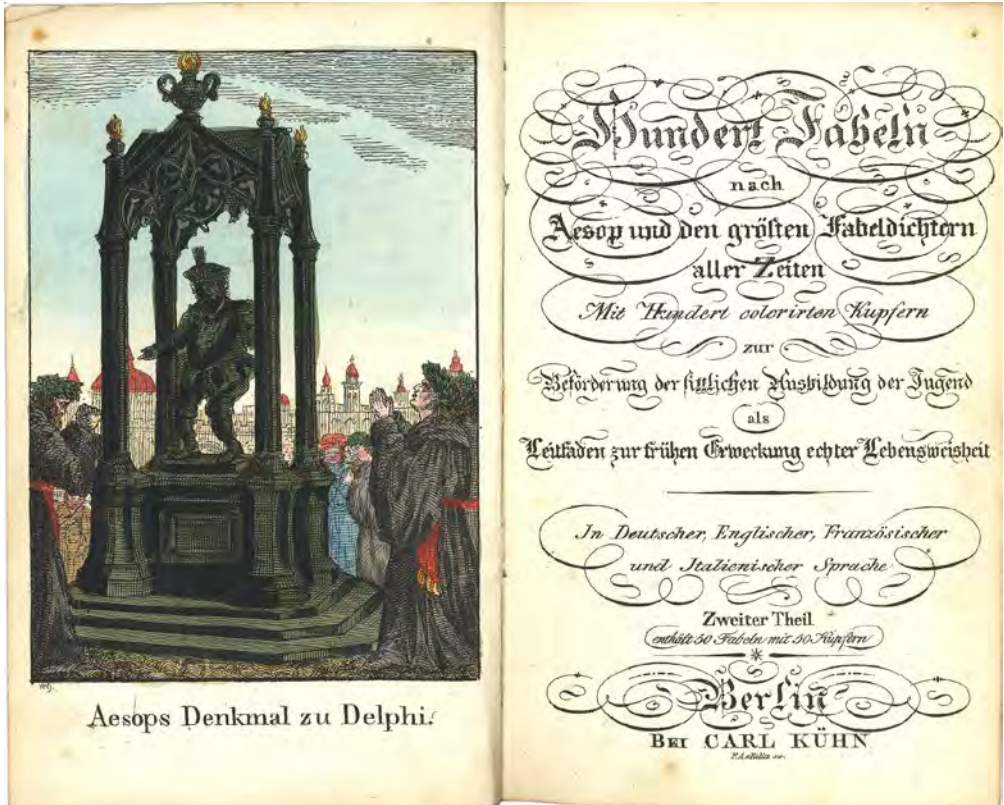 Aesops Denkmal zu Delphi.
Hundert Fabeln
nach
Aesop und den größten Fabeldichtern
aller Zeiten
Mit Hundert colorirten Kupfern
zur
Beförderung der sittlichen Ausbildung der Jugend
als
Leitfaden zur frühen Erweckung echter Lebensweisheit
In Deutscher, Englischer, Französischer
und Italienischer Sprache
Zweiter Theil
enthält 50 Fabeln mit 50 Kupfern
Berlin
BEI CARL KÜHN